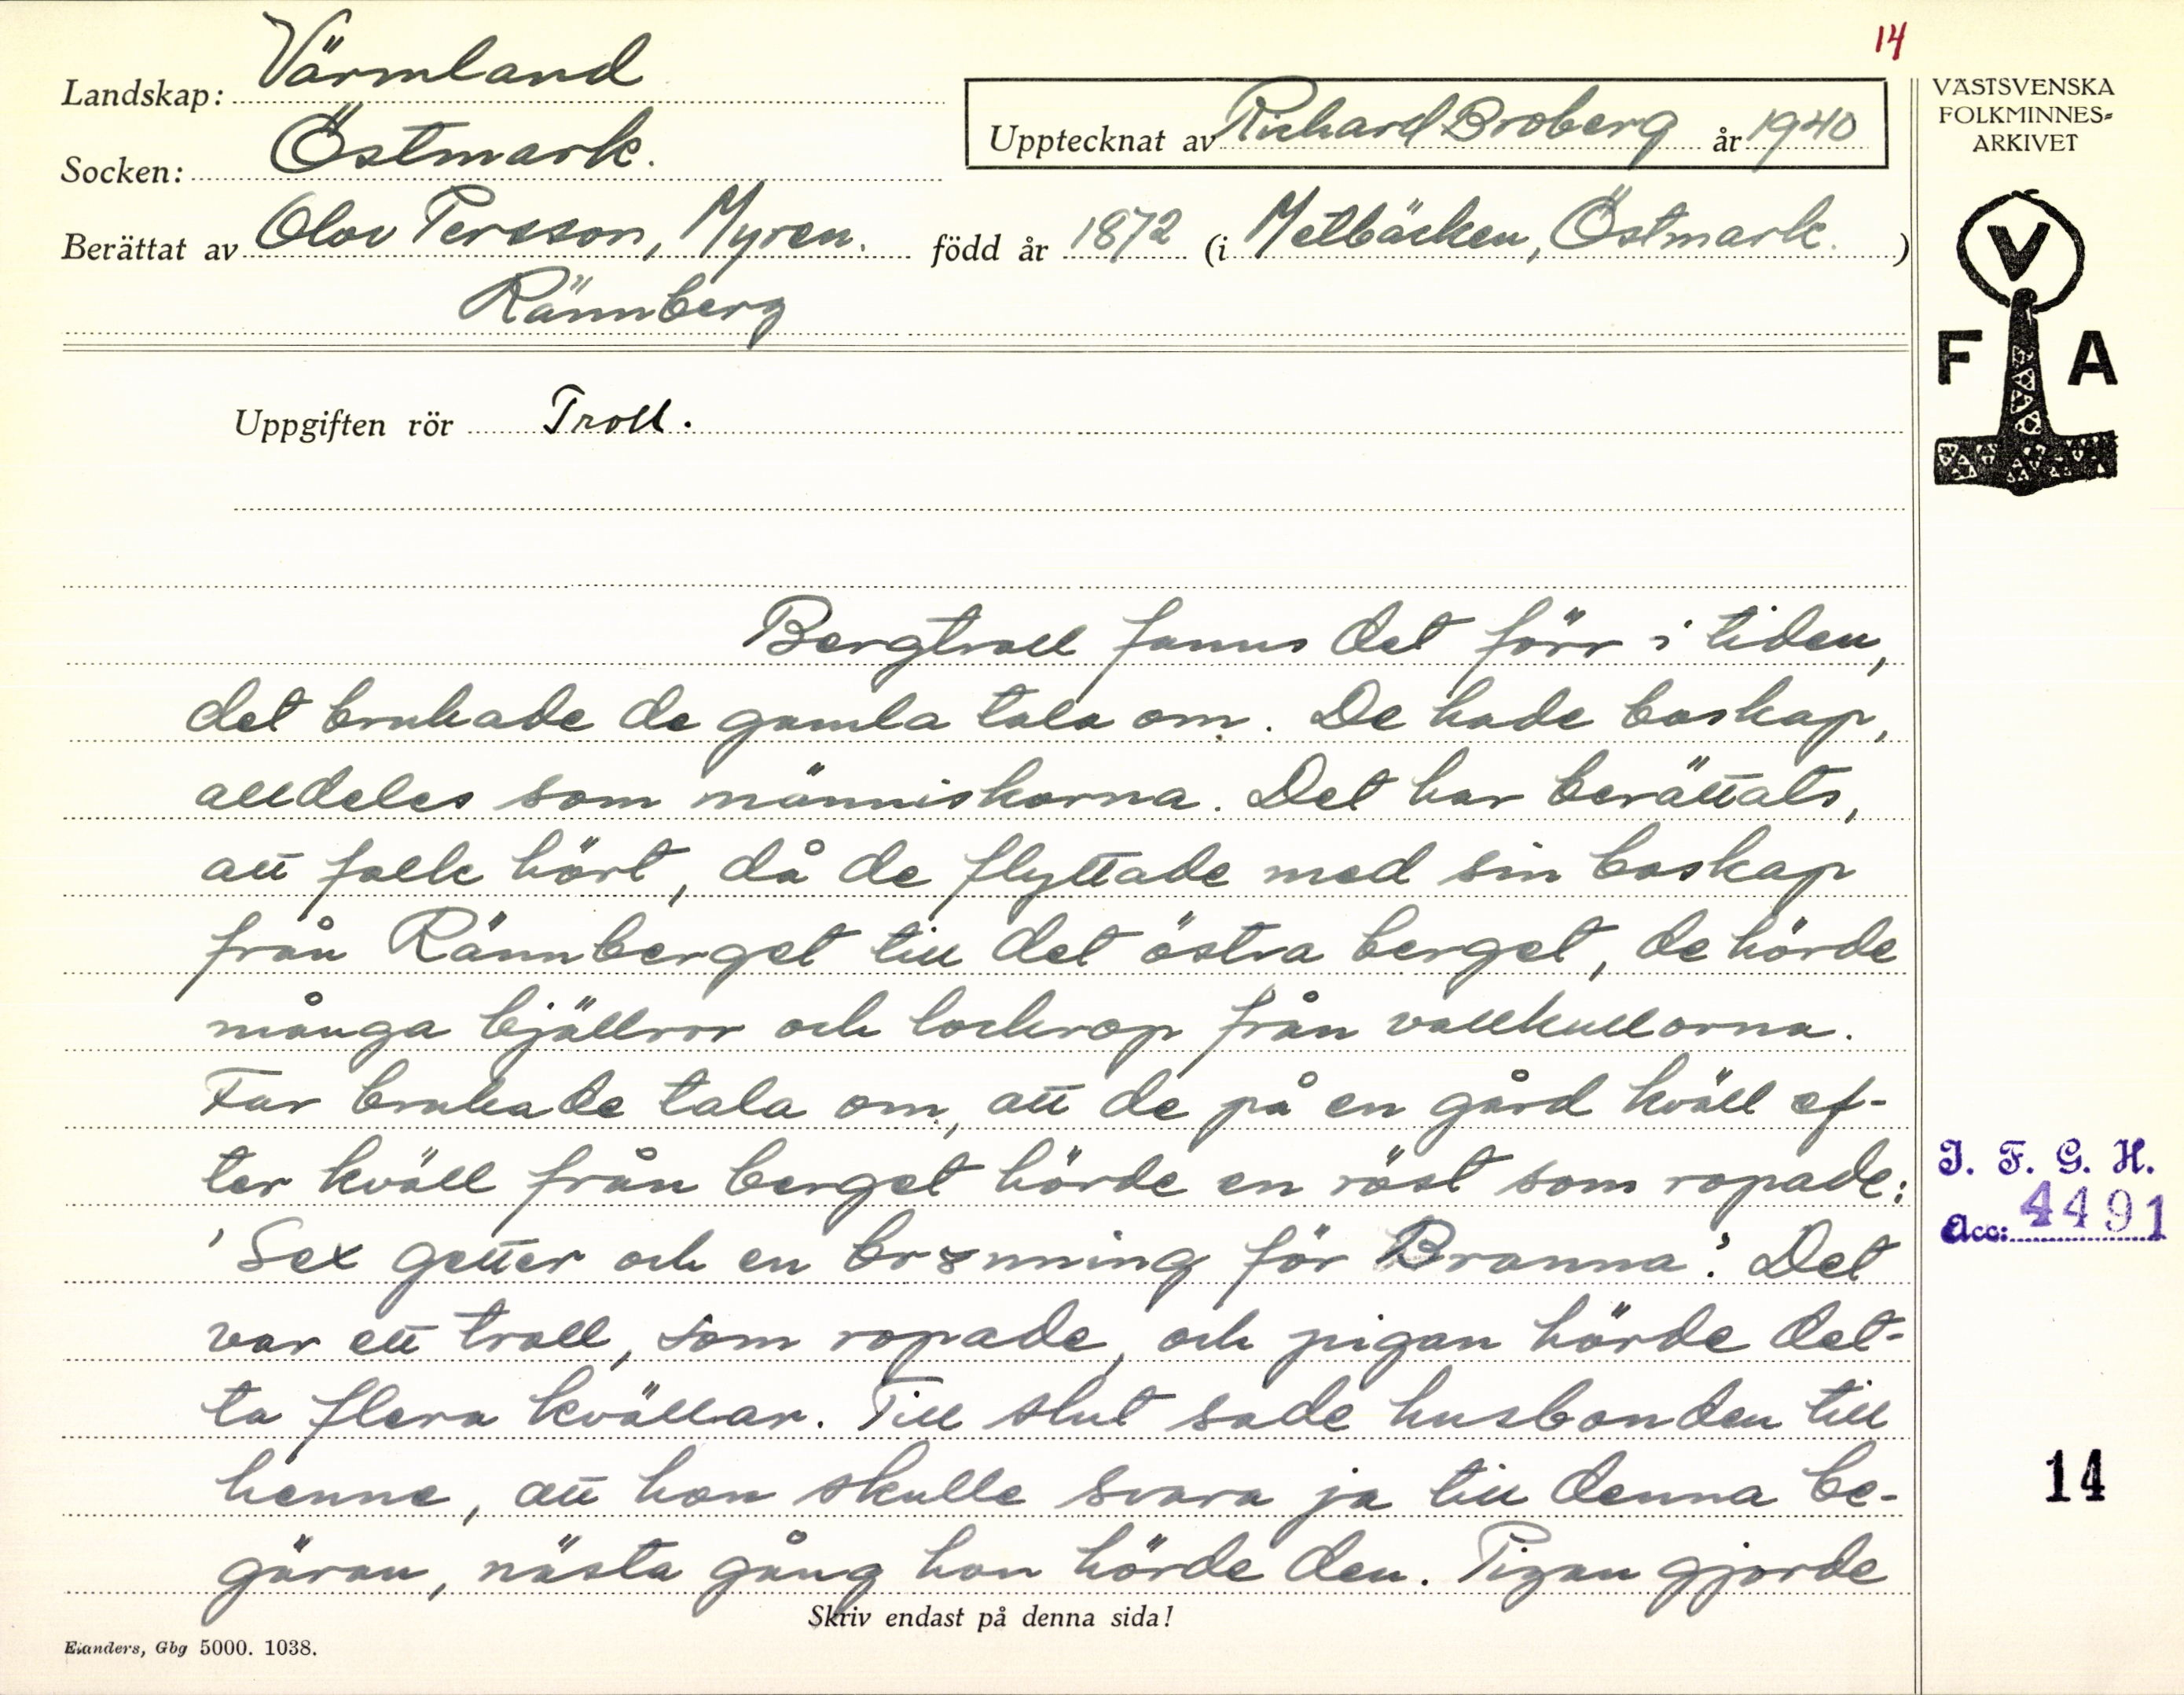 14
Landskap: Värmland
Socken: Östmark.
Upptecknat av Richard Broberg år 1940
Berättat av Olov Persson, Myren. född år 1872 (i Metbäcken, Östmark.)
Rännberg
VÄSTSVENSKA
FOLKMINNES=
ARKIVET
V
F A
Uppgiften rör Troll.
Bergtroll fanns det förr i tiden,
det brukade de gamla tala om. De hade boskap,
alldeles som människorna. Det har berättats,
att folk hört, då de flyttade med sin boskap
från Rännberget till det östra berget, de hörde
många bjällror och lockrop från vallkullorna.
Far brukade tala om, att de på en gård kväll ef-
ter kväll från berget hörde en röst som ropade:
'Sex getter och en brynning för Branna'. Det
var ett troll, som ropade, och pigan hörde det-
ta flera kvällar. Till slut sade husbonden till
henne, att hon skulle svara ja till denna be-
gäran, nästa gång hon hörde den. Pigan gjorde
Skriv endast på denna sida!
Elanders, Gbg 5000. 1038.
I. F. G. H.
Acc: 4491
14